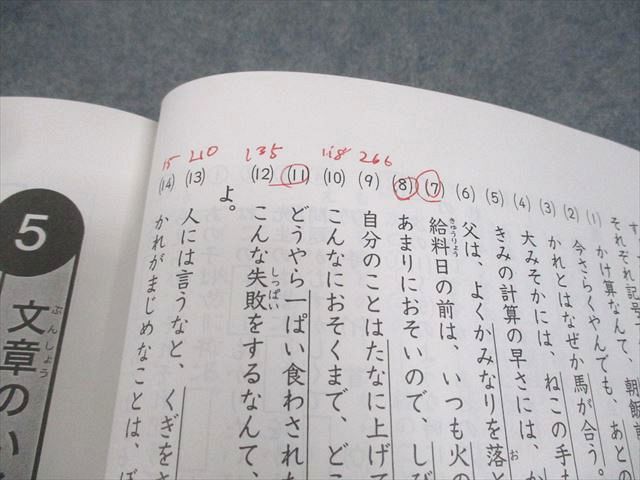 それぞれ記号
(1) かけ算なんて、朝飯前
(2) 今さらくやんでも、あとの
(3) かれとはなぜか馬が合う。
(4) 大みそかには、ねこの手
(5) きみの計算の早さには、
(6) 父は、よくかみなりを落と
(7) 給料日の前は、いつも火の
きゅうりょう
(8) あまりにおそいので、しび
(9) 自分のことはたなに上げて
(10) こんなにおそくまで、どこ
(11) どうやら一ぱい食わされた
よ。
(12) こんな失敗をするなんて、
しっぱい
(13) 人には言うなと、くぎをさ
(14) かれがまじめなことは、ぼ
266
118
135
210
15
5
文章のい
ぶんしょう